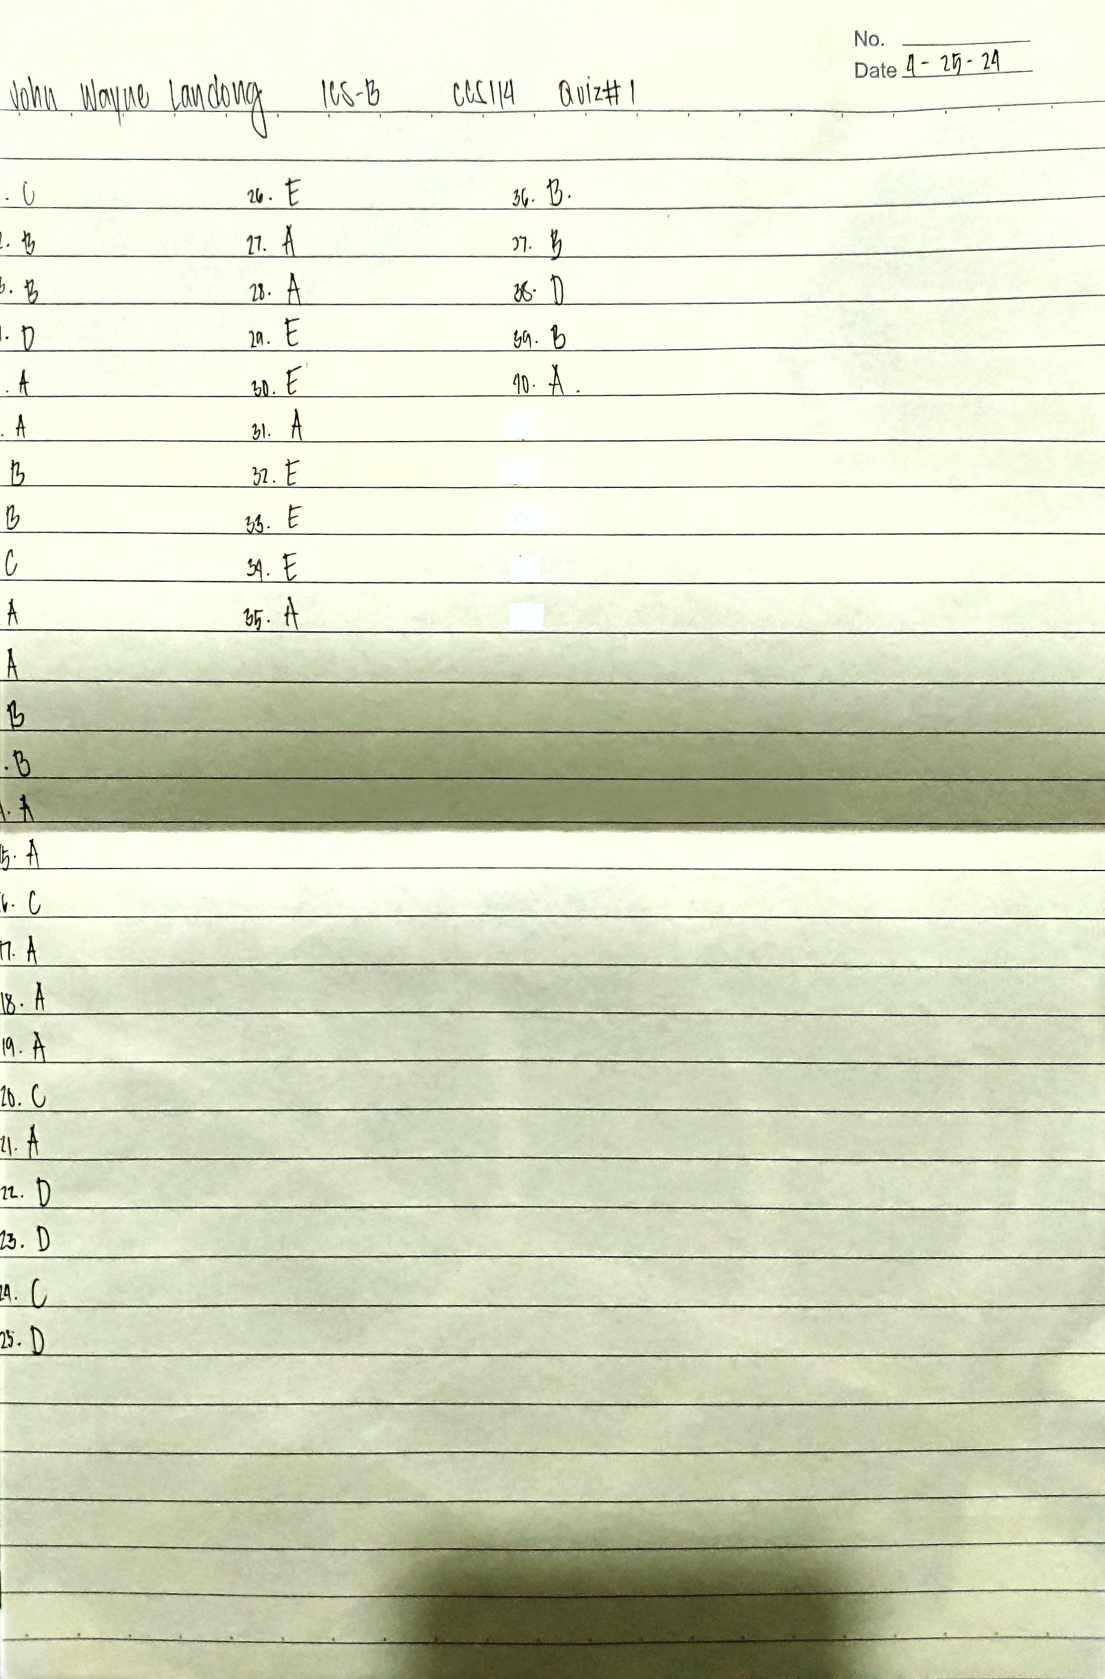 No.
Date 4-25-24
John Wayne Landong 1CS-B CCS114 Quiz#1
. C
2. B
3. B
. D
. A
. A
B
B
C
A
A
B
. B
. A
15. A
16. C
17. A
18. A
19. A
20. C
21. A
22. D
23. D
24. C
25. D
26. E
27. A
28. A
29. E
30. E
31. A
32. E
33. E
34. E
35. A
36. B.
37. B
38. D
39. B
40. A.